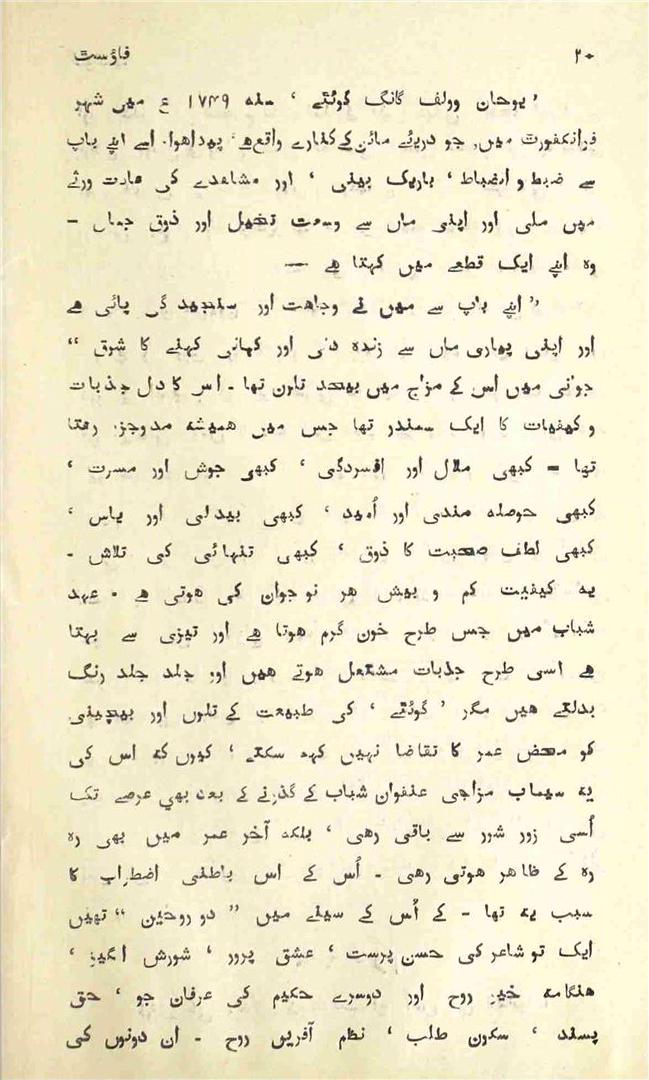 ۲۰ فاؤست
’ یوحان وولف گانگ گوئٹے ‘ سنہ ۱۷۴۹ ع میں شہر
فرانکفورٹ میں، جو دریائے مائن کے کنارے واقع ھے، پیدا ھوا۔ اسے اپنے باپ
سے ضبط و انضباط ‘ باریک بینی ‘ اور مشاھدے کی عادت ورثے
میں ملی اور اپنی ماں سے وسعت تخیل اور ذوق جمال ۔
وہ اپنے ایک قطعے میں کہتا ھے —
” اپنے باپ سے میں نے وجاھت اور سنجیدگی پائی ھے
اور اپنی پیاری ماں سے زندہ دلی اور کہانی کہنے کا شوق “
جوانی میں اس کے مزاج میں بیحد تلون تھا ۔ اس کا دل جذبات
و کیفیات کا ایک سمندر تھا جس میں ھمیشہ مدوجزر رھتا
تھا ۔ کبھی ملال اور افسردگی ‘ کبھی جوش اور مسرت ‘
کبھی حوصلہ مندی اور اُمید ‘ کبھی بیدلی اور یاس ‘
کبھی لطف صحبت کا ذوق ‘ کبھی تنہائی کی تلاش ۔
یہ کیفیت کم و بیش ھر نوجوان کی ھوتی ھے ۔ عہد
شباب میں جس طرح خون گرم ھوتا ھے اور تیزی سے بہتا
ھے اسی طرح جذبات مشتعل ھوتے ھیں اور جلد جلد رنگ
بدلتے ھیں مگر ’ گوئٹے ‘ کی طبیعت کے تلون اور بیچینی
کو محض عمر کا تقاضا نہیں کہہ سکتے ‘ کیوں کہ اس کی
یہ سیماب مزاجی عنفوان شباب کے گذرنے کے بعد بھی عرصے تک
اُسی زور شور سے باقی رھی ‘ بلکہ آخر عمر میں بھی رہ
رہ کے ظاھر ھوتی رھی ۔ اُس کے اس باطنی اضطراب کا
سبب یہ تھا ۔ کے اُس کے سینے میں ” دو روحین “ تھیں
ایک تو شاعر کی حسن پرست ‘ عشق پرور ‘ شورش انگیز ‘
ھنگامہ خیز روح اور دوسرے حکیم کی عرفان جو ‘ حق
پسند ‘ سکون طلب ‘ نظم آفریں روح ۔ ان دونوں کی